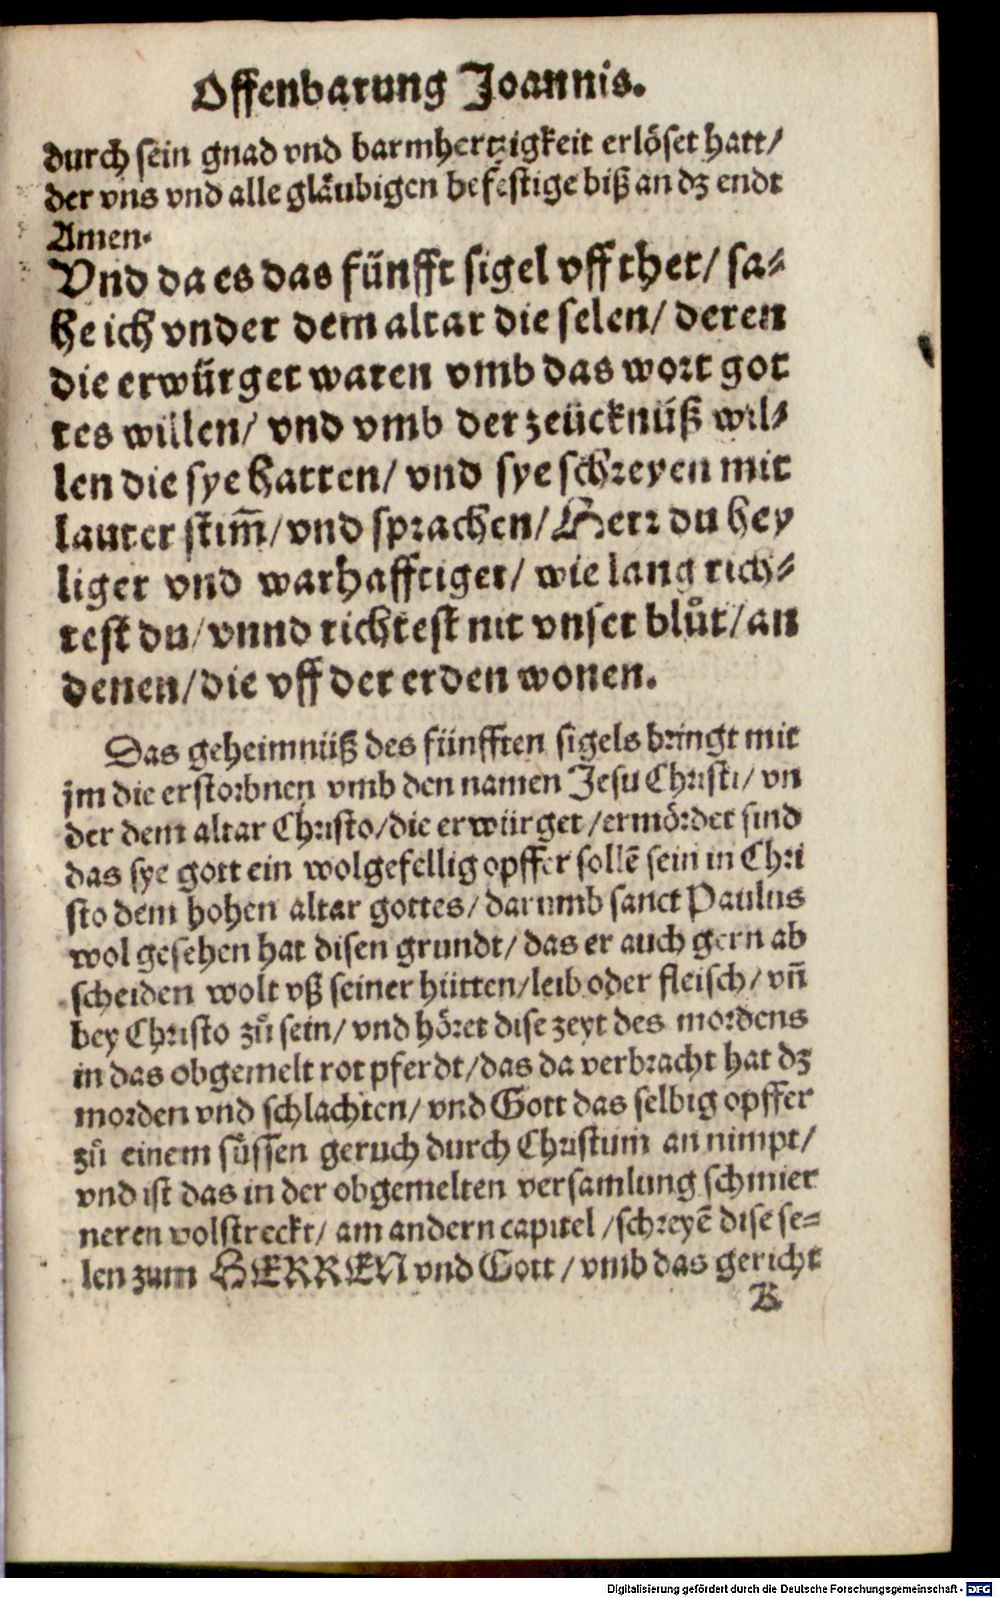 Offenbarung Joannis.
durch sein gnad vnd barmhertzigkeit erlöset hatt/
der vns vnd alle gläubigen befestige biß an dz endt
Amen.
Vnd da es das fünfft sigel vff thet/ sa⸗
he ich vnder dem altar die selen/ deren
die erwürget waren vmb das wort got
tes willen/ vnd vmb der zeücknüß wil⸗
len die sye hatten/ vnd sye schreyen mit
lauter stim̄/ vnd sprachen/ Herr du hey
liger vnd warhafftiger/ wie lang rich⸗
test du/ vnnd richtest nit vnser blůt/ an
denen/ die vff der erden wonen.
Das geheimnüß des fünfften sigels bringt mit
jm die erstorbnen vmb den namen Jesu Christi/ vn
der dem altar Christo/ die erwürget/ ermördet sind
das sye gott ein wolgefellig opffer sollē sein in Chri
sto dem hohen altar gottes/ darumb sanct Paulus
wol gesehen hat disen grundt/ das er auch gern ab
scheiden wolt vß seiner hütten/ leib oder fleisch/ vn̄
bey Christo zů sein/ vnd höret dise zeyt des mordens
in das obgemelt rot pferdt/ das da verbracht hat dz
morden vnd schlachten/ vnd Gott das selbig opffer
zů einem süssen geruch durch Christum an nimpt/
vnd ist das in der obgemelten versamlung schmier
neren volstreckt/ am andern capitel/ schreyē dise se⸗
len zum HERREN vnd Gott/ vmb das gericht
K
Digitalisierung gefördert durch die Deutsche Forschungsgemeinschaft - DFG